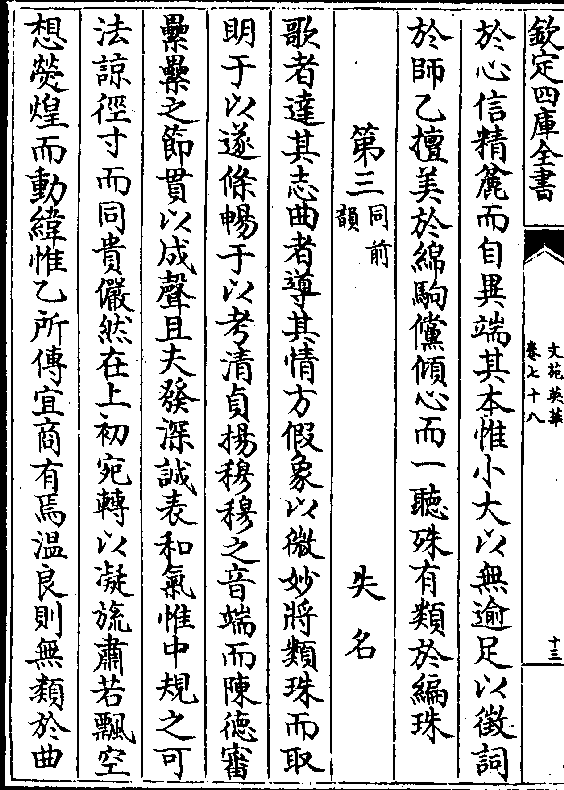 欽定四庫全書
文苑英華
卷七十八
十三
於心信精麄而自異端其本惟小大以無逾足以徵詞
於師乙擅美於綿駒儻傾心而一聽殊有類於編珠
第三同前韻 失名
歌者達其志曲者導其情方假象以微妙將類珠而取
明于以遂條暢于以考清貞揚穆穆之音端而陳德審
纍纍之節貫以成聲且夫發深誠表和氣惟中規之可
法諒徑寸而同貴儼然在上初宛轉以凝旒肅若飄空
想熒煌而動緯惟乙所傳宜商有焉温良則無纇於曲